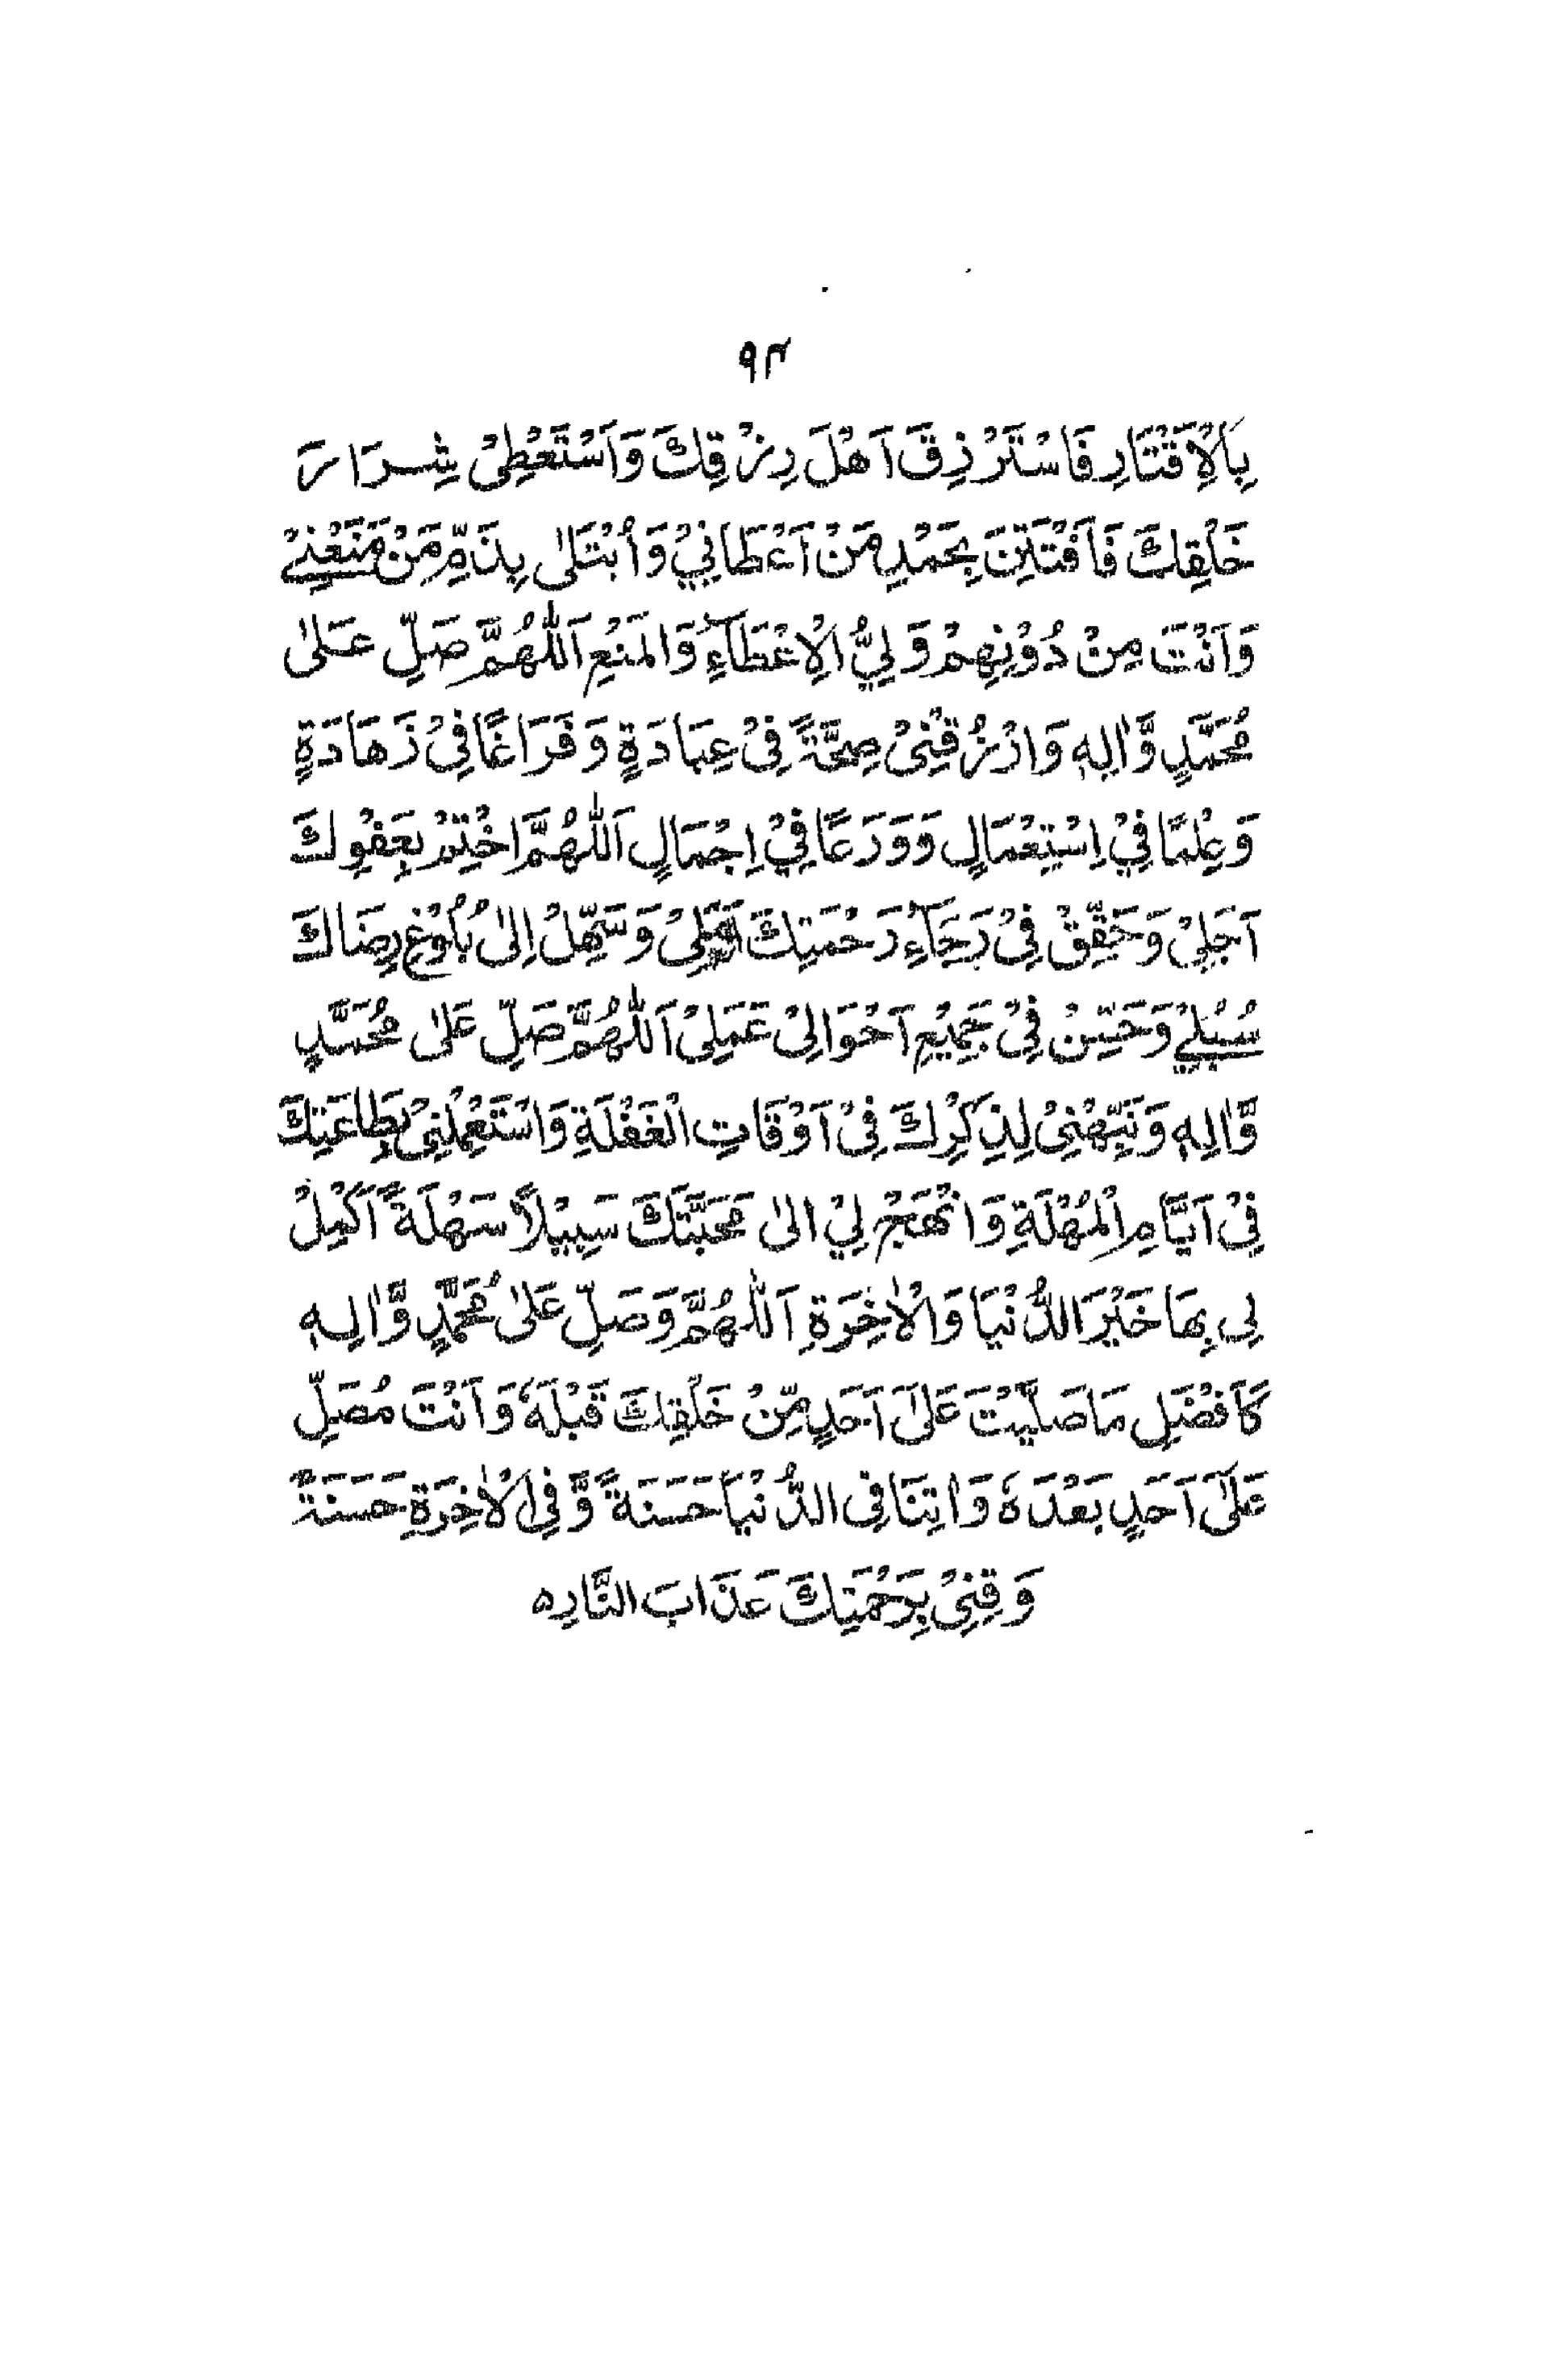 ۹۴
بِالْاِقْتَارِ فَاَسْتَرْزِقَ اَهْلَ رِزْقِكَ وَاَسْتَعْطِىْ شِرَارَ
خَلْقِكَ فَاَفْتَتِنَ بِحَمْدِ مَنْ اَعْطَانِيْ وَاُبْتَلٰى بِذَمِّ مَنْ مَنَعَنِيْ
وَاَنْتَ مِنْ دُوْنِهِمْ وَلِيُّ الْاِعْطَآءِ وَالْمَنْعِ اَللّٰهُمَّ صَلِّ عَلٰى
مُحَمَّدٍ وَّاٰلِهٖ وَارْزُقْنِىْ صِحَّةً فِىْ عِبَادَةٍ وَفَرَاغًا فِىْ زَهَادَةٍ
وَعِلْمًا فِيْ اِسْتِعْمَالٍ وَوَرَعًا فِيْ اِجْمَالٍ اَللّٰهُمَّ اخْتِمْ بِعَفْوِكَ
اَجَلِيْ وَحَقِّقْ فِىْ رَجَآءِ رَحْمَتِكَ اَمَلِىْ وَسَهِّلْ اِلٰى بُلُوْغِ رِضَاكَ
سُبُلِيْ وَحَسِّنْ فِىْ جَمِيْعِ اَحْوَالِىْ عَمَلِىْ اَللّٰهُمَّ صَلِّ عَلٰى مُحَمَّدٍ
وَّاٰلِهٖ وَنَبِّهْنِىْ لِذِكْرِكَ فِىْ اَوْقَاتِ الْغَفْلَةِ وَاسْتَعْمِلْنِىْ بِطَاعَتِكَ
فِىْ اَيَّامِ الْمُهْلَةِ وَانْهَجْ لِيْ اِلٰى مَحَبَّتِكَ سَبِيْلًا سَهْلَةً اَكْمِلْ
لِى بِهَا خَيْرَ الدُّنْيَا وَالْاٰخِرَةِ اَللّٰهُمَّ وَصَلِّ عَلٰى مُحَمَّدٍ وَّاٰلِهٖ
كَاَفْضَلِ مَا صَلَّيْتَ عَلٰى اَحَدٍ مِّنْ خَلْقِكَ قَبْلَهٗ وَاَنْتَ مُصَلٍّ
عَلٰٓى اَحَدٍ بَعْدَهٗ وَاٰتِنَا فِى الدُّنْيَا حَسَنَةً وَّفِى الْاٰخِرَةِ حَسَنَةً
وَقِنِىْ بِرَحْمَتِكَ عَذَابَ النَّارِ ه